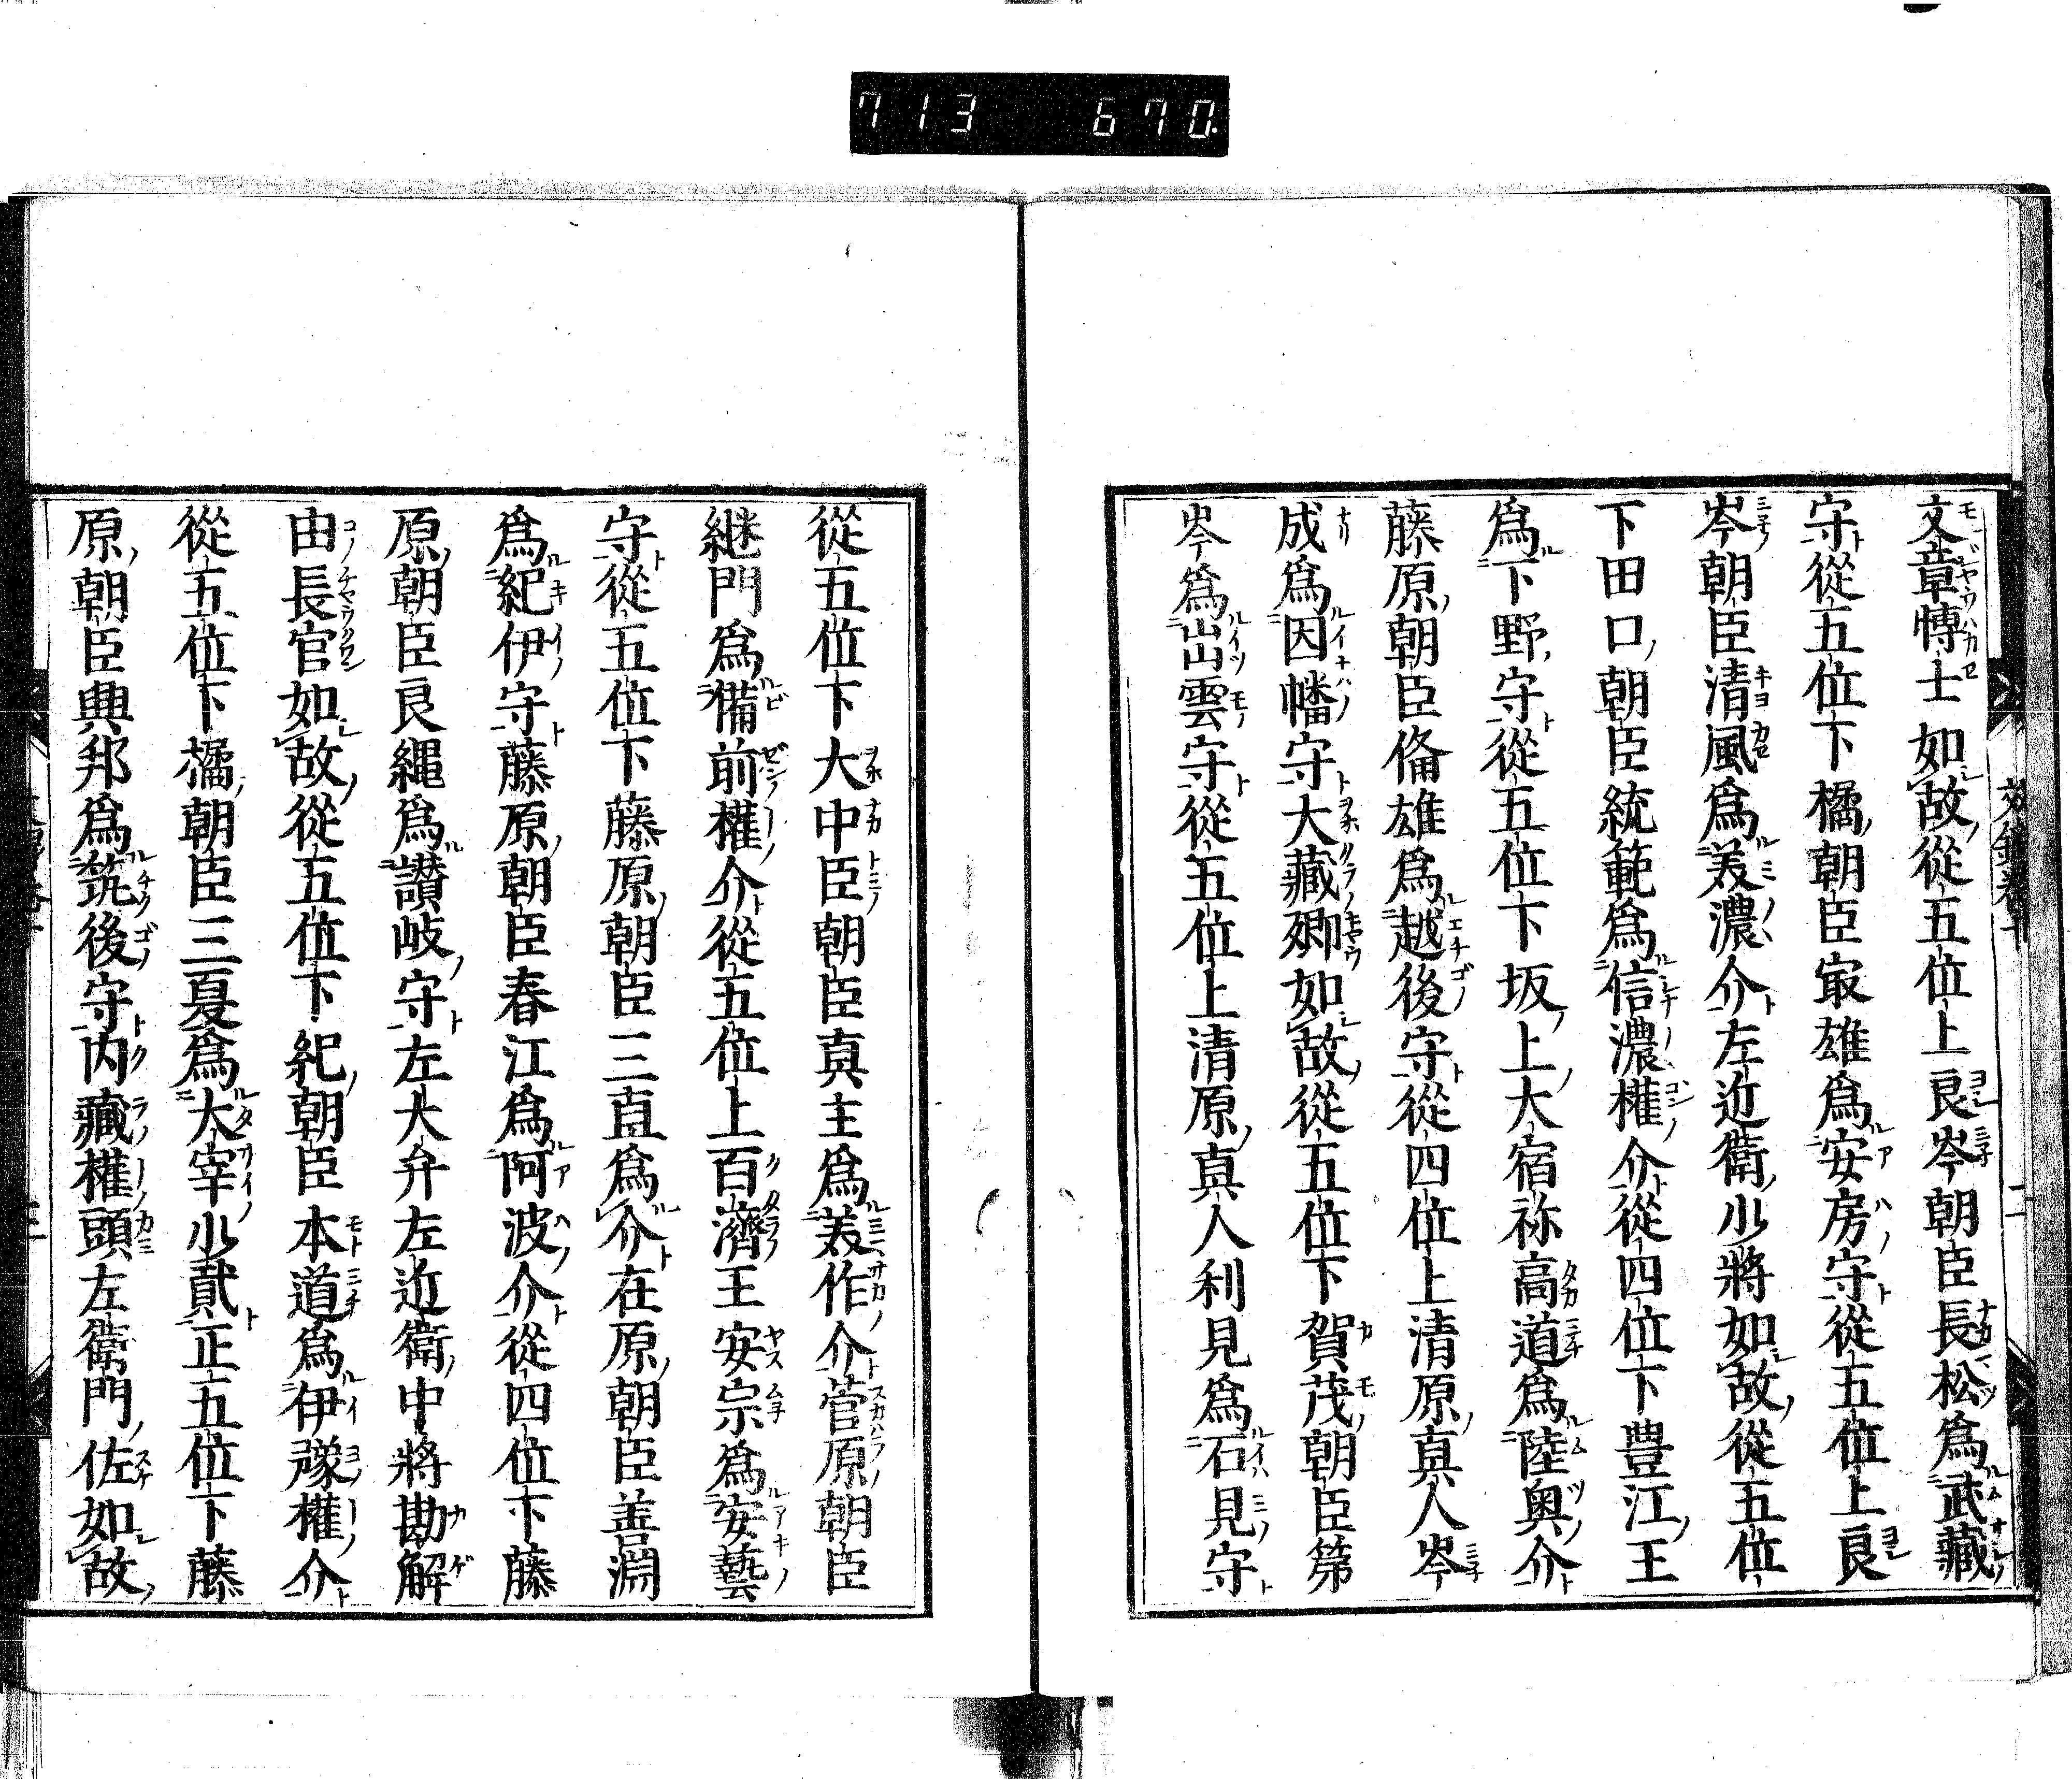 713 670
文章博士如故從五位上良岑朝臣長松爲武藏
守從五位下橘朝臣㝡雄爲安房守從五位上良
岑朝臣清風爲美濃介左近衛少將如故從五位
下田口朝臣統範爲信濃權介從四位下豊江王
爲下野守從五位下坂上大宿祢高道爲陸奥介
藤原朝臣俻雄爲越後守從四位上清原真人岑
成爲因幡守大藏卿如故從五位下賀茂朝臣第
岑爲出雲守從五位上清原真人利見爲石見守
從五位下大中臣朝臣真主爲美作介菅原朝臣
継門爲備前權介從五位上百濟王安宗爲安藝
守從五位下藤原朝臣三直爲介在原朝臣善淵
爲紀伊守藤原朝臣春江爲阿波介從四位下藤
原朝臣良縄爲讃岐守左大弁左近衛中將勘解
由長官如故從五位下紀朝臣本道爲伊豫權介
從五位下橘朝臣三夏爲大宰少貳正五位下藤
原朝臣興邦爲筑後守内藏權頭左衛門佐如故